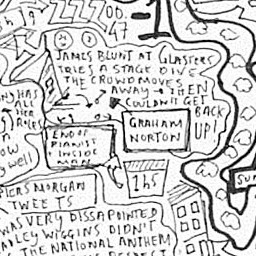 00.
47
-1
JAMES BLUNT AT GLASTERS
TRIES A STAGE DIVE
THE CROWD MOVES
AWAY → THEN
COULDN'T GET
BACK
UP!
NY HAS
ALL
HER
GRAHAM
NORTON
END OF
PIANIST
INSIDE
MAN
OW
WELL
1hs
PIERS MORGAN
TWEETS
WAS VERY DISSAPOINTED
ADLEY WIGGINS DIDN'T
THE NATIONAL ANTHEM
RESPECT
SUN